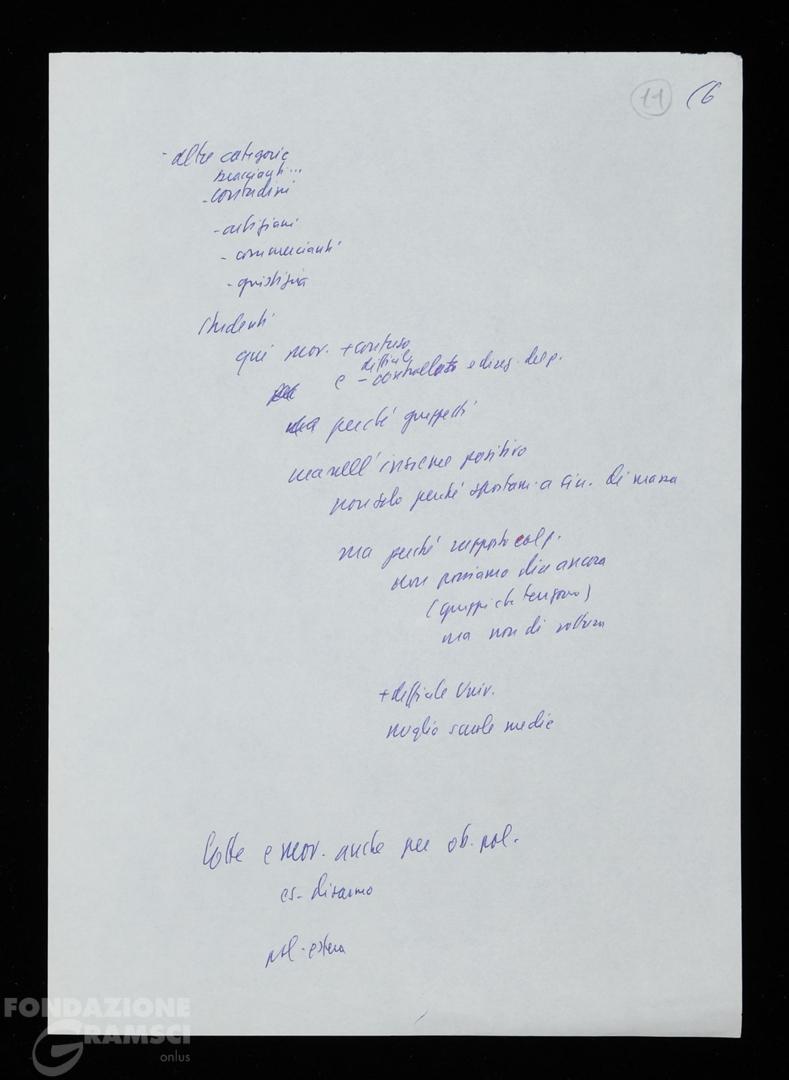 11 16
- altre categorie
braccianti...
- contadini
- artigiani
- commercianti
- giustizia
studenti
qui mov. + confuso
difficile
e - controllato e direz. del p.
ma perché gruppetti
ma nell'insieme positivo
non solo perché spostam. a sin. di massa
ma perché rapporto col p.
non possiamo dire ancora
(gruppi che tengono)
ma non di rottura
+ difficile Univ.
meglio scuole medie
Lotte e mov. anche per ob. pol.
es - disarmo
pol. estera
FONDAZIONE
GRAMSCI
onlus